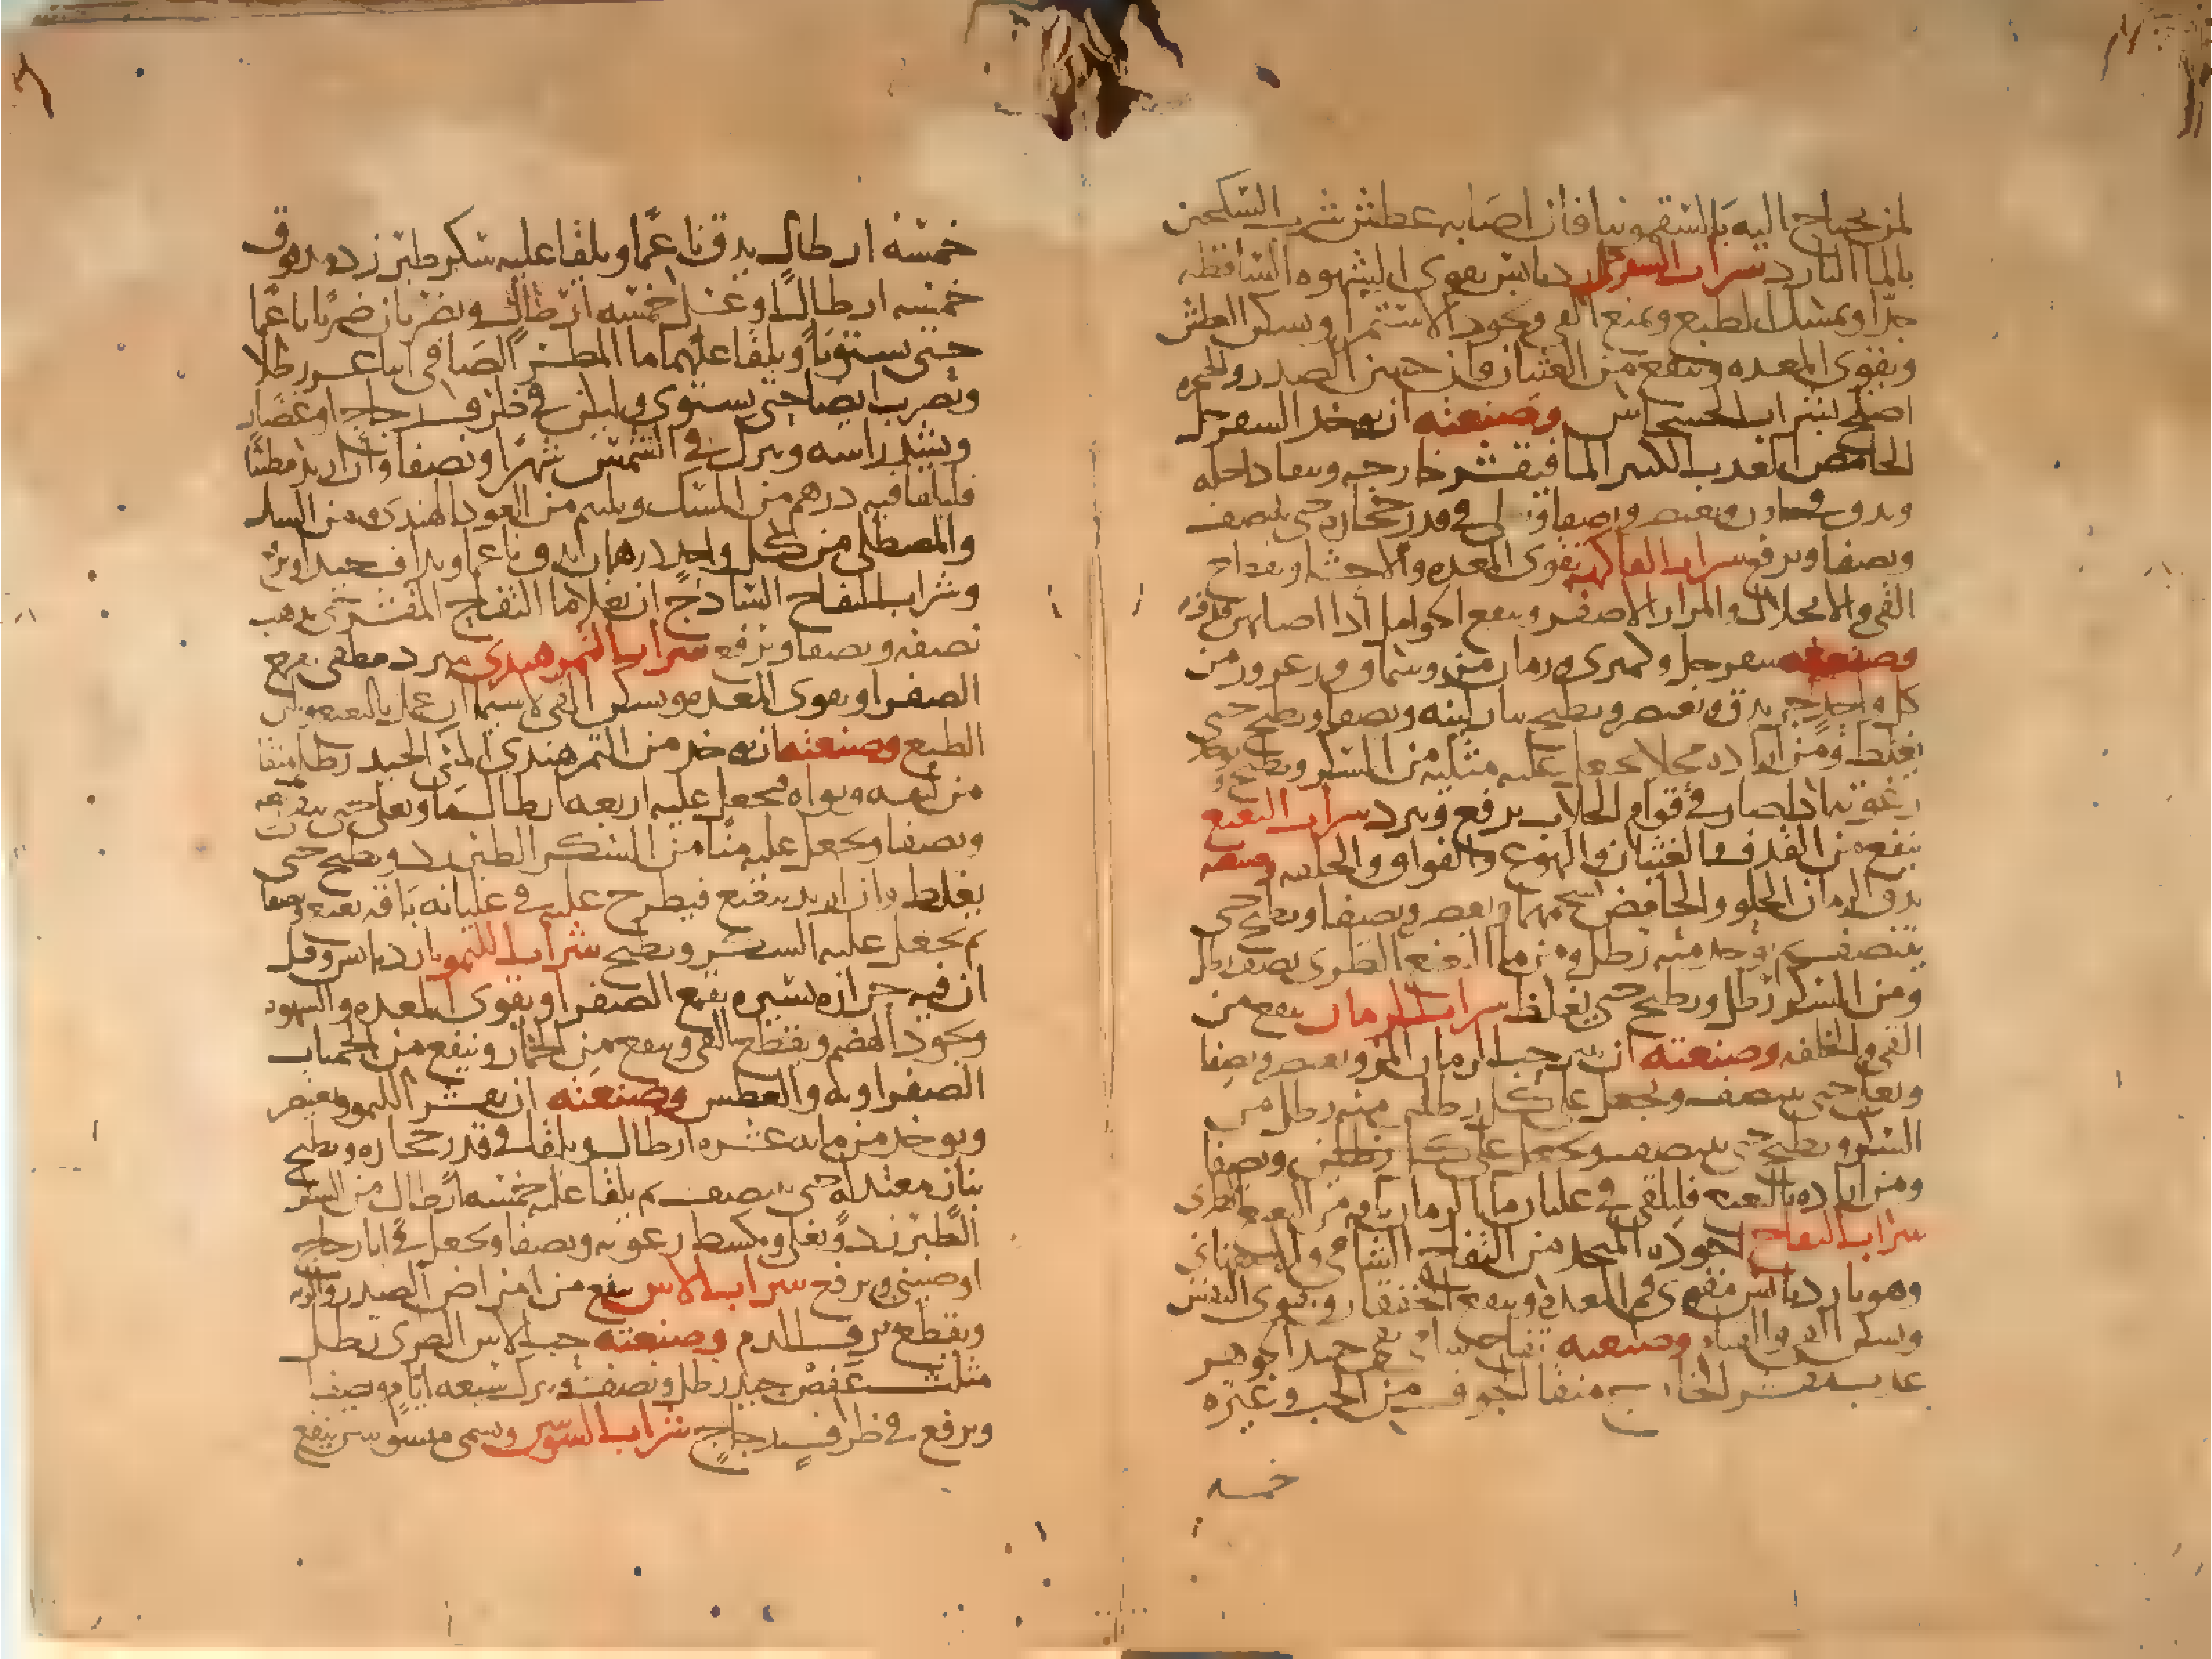 لمن يحتاج اليه بالسقمونيا فان اصابه عطش شرب السكنجبين
بالما البارد شراب السفرجل بارد يابس يقوى الشهوه الساقطه
جدّا ويمسك الطبع ويمنع القى ويجود الاستمرا ويسكن العطش
ويقوى المعده وينفع من الغثيان فان خشن الصدر والحنجره
اصلح بشراب الخشخاش وصنعته ان يوخد السفرجل
الحامض العدب الكثير الما فيقشر خارجه وينقا داخله
ويدق فى هاون ويعتصر ويصفا ويغلى فى قدر حجاره حتى ينتصف
ويصفا ويرفع شراب الفاكهه يقوى المعده والاحشا
القى والانحلال والمرار الاصفر وينفع الحوامل ادا اصابهن
وصنعته سفرجل وكمثرى ورمان مز وسماق وزعرور من
كل واحد جز يدق ويعتصر ويطبخ بنار لينه ويصفا ويطبخ حتى
يغلظ ومن اراده محلا يجعل عليه مثليه من السكر ويطبخ
رغوته ادا صار فى قوام الجلاب يرفع ويبرد شراب النعنع
ينفع من القدف والغثيان والهوع والفواق والخلفه وصنعته
يدق الرمان الحلو والحامض بشحمهما ويعصر ويصفا ويطبخ حتى
ينتصف ثم يوخد منه رطل ومن ما النعنع الطرى نصف رطل
ومن السكر رطل ويطبخ حتى يغلظ شراب الرمان ينفع من
القى والخلفه وصنعته ان حب الرمان المز ويعصر ويصفا
ويغلى حتى ينتصف ويجعل على كل رطلين منه رطل من
السكر ويطبخ حتى ينتصف ويجعل على كل رطلين ويصفا
ومن اراده بالنعنع فليلقى فى غليان ما الرمان باقه من النعنع الطرى
شراب التفاح اجوده المتخد من التفاح الشامى والاصفهانى
وهو بارد يابس مقوى فم المعده وينفع الخفقان ويقوى النفس
ويسكن القى وصنعته تفاح جيد الجوهر
يقشر الخارج منقا الجوف من الحب وغيره
خمسه
خمسه ارطال يدق ناعمًا ويلقا عليه سكر طبرزد مدقوق
خمسه ارطال او عسل خمسه ارطال ويضربان ضربًا ناعمًا
حتى يستويا ويلقا عليهما ما المطر الصافى اثنا عشر رطلا
ويضرب ايضا حتى يستوى وليكن فى ظرف زجاج او غضار
ويشد راسه ويترك فى الشمس شهرًا ونصفا وان اريد مطيبًا
فليلقا فيه درهم من المسك ومثله من العود الهندى ومن السك
والمصطكى من كل واحد درهمان يدق ناعما ويداف جيدا
وشراب التفاح السادج ان يغلا ما التفاح المقشر حتى يدهب
نصفه ويصفا ويرفع شراب التمر هندى مبرد مطفى يقمع
الصفرا ويقوى المعده ويسكن القى لاسيما ان عمل بالنعنع ويلين
الطبع وصنعته ان يوخد من التمر هندى المنقى الجيد رطل منقا
من ليفه ونواه فيجعل عليه اربعه ارطال ما ويغلى حتى
ويصفا ويجعل عليه منًا من السكر الطبرزد ويطبخ حتى
يغلظ وان اريد بنعنع فيطرح عليه فى غليانه باقه نعنع ويصفا
ثم يجعل عليه السكر ويطبخ شراب الليمو بارد يابس وقيل
ان فيه حراره يسيره يقمع الصفرا ويقوى المعده والشهوه
ويجود الهضم ويقطع القى وينفع من الخمار وينفع من الحميات
الصفراويه والعطس وصنعته ان يقشر الليمو ويعتصر
ويوخد من مايه عشره ارطال ويلقا فى قدر حجاره ويطبخ
بنار معتدله حتى ينتصف ثم يلقا عليه خمسه ارطال من السكر
الطبرزد ويغلى ويكشط رغوته ويصفا ويجعل فى انا زجاج
او صينى ويرفع شراب الاس ينفع من امراض الصدر والريه
ويقطع نزف الدم وصنعته حب الاس الطرى رطل
مثلث عفص جيد رطل ونصف ويترك سبعه ايام ويصفا
ويرفع فى ظرف زجاج شراب السوسن وسمى ميسوسن ينفع